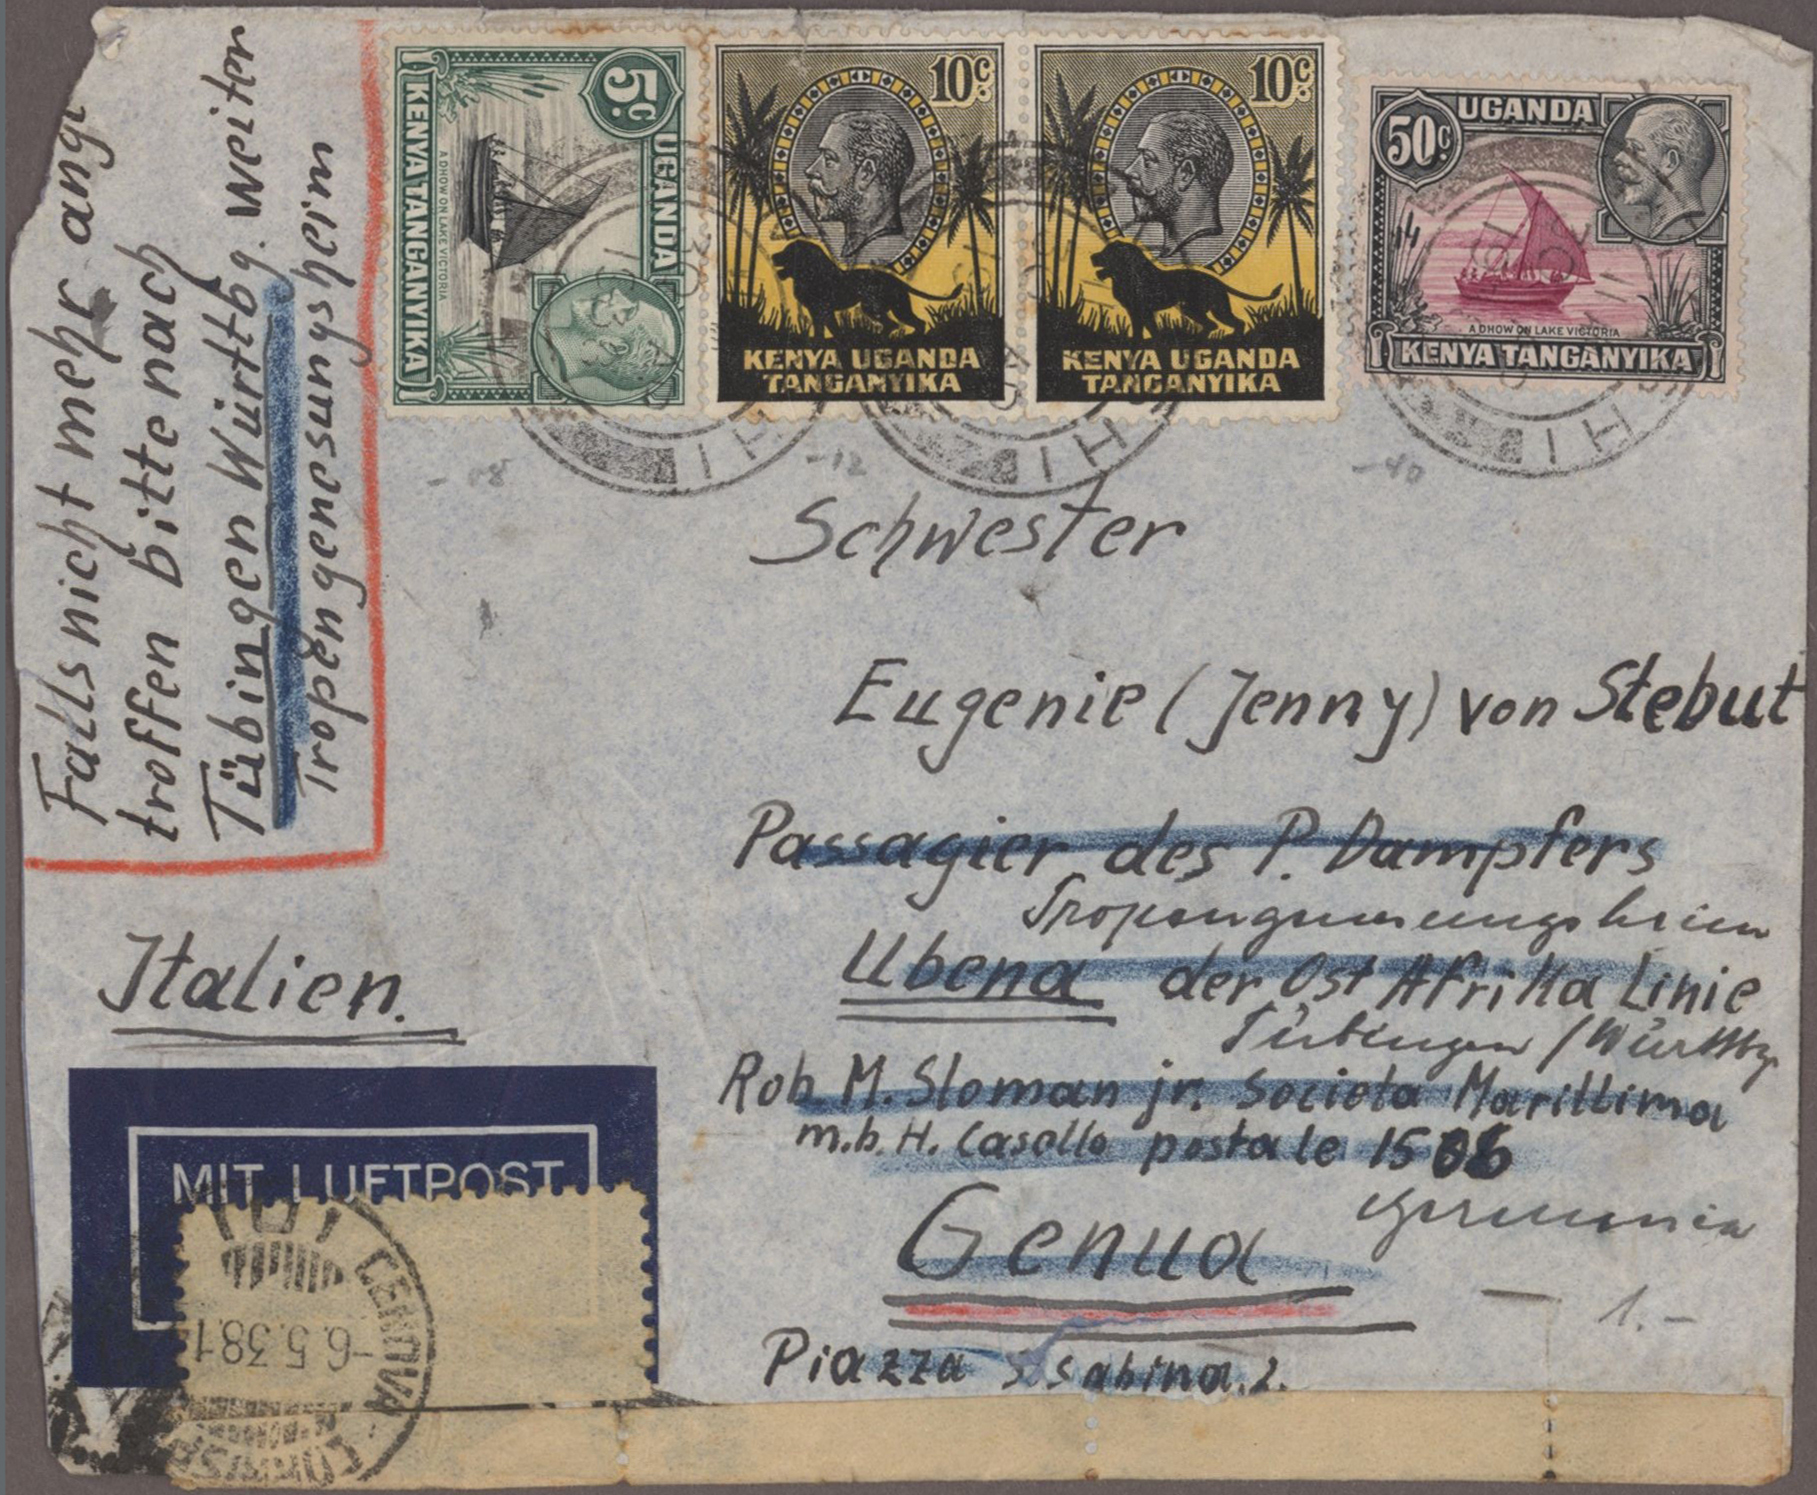 Falls nicht mehr ange
troffen bitte nach
Tübingen Württbg. weiter
Tropengenesungsheim
5c
UGANDA
KENYA TANGANYIKA
A DHOW ON LAKE VICTORIA
10c
KENYA UGANDA
TANGANYIKA
10c
KENYA UGANDA
TANGANYIKA
50c
UGANDA
A DHOW ON LAKE VICTORIA
KENYA TANGANYIKA
-12
-40
Schwester
Eugenie (Jenny) von Stebut
Passagier des P. Dampfers
Tropengenesungsheim
Ubena der Ost Afrika Linie
Tübingen / Württbg.
Rob M. Sloman jr. Societa Marittima
m.b.H. Casella postale 1506
Germania
Genua
1.-
Piazza S. Sabina. 2.
Italien.
MIT LUFTPOST
GENOVA
-6.5.38.1